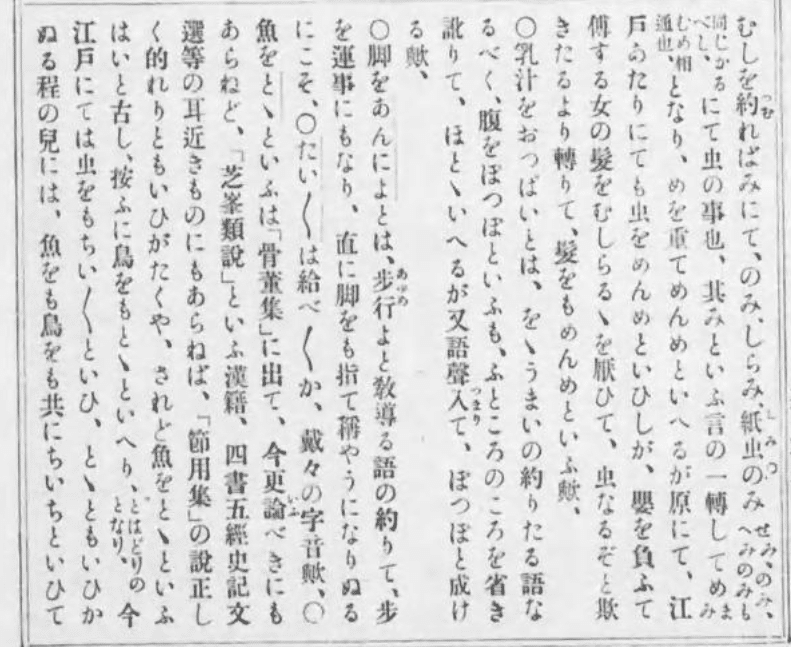 むしを約ればみにて、のみ、しらみ、紙虫のみせみ、のみ、へみのみも
同じかるべし、にて虫の事也、其みといふ言の一轉してめみまむめ相
通也、となり、めを重てめんめといへるが原にて、江
戸あたりにても虫をめんめといひしが、嬰を負ふて
傅する女の髮をむしらるヽを厭ひて、虫なるぞと欺
きたるより轉りて、髮をもめんめといふ歟、
〇乳汁をおつぱいとは、をヽうまいの約りたる語な
るべく、腹をぽつぽといふも、ふところのころを省き
訛りて、ほとヽいへるが又語聲入て、ぽつぽと成け
る歟、
〇脚をあんによとは、步行よと敎導る語の約りて、步
を運事にもなり、直に脚をも指て稱やうになりぬる
にこそ、〇たい〳〵は給べ〳〵か、戴々の字音歟、〇
魚をとヽといふは「骨董集」に出て、今更論べきにも
あらねど、「芝峯類說」といふ漢籍、四書五經史記文
選等の耳近きものにもあらねば、「節用集」の說正し
く的れりともいひがたくや、されど魚をとヽといふ
はいと古し、按ふに鳥をもとヽといへり、とはどりのとなり、今
江戸にては虫をもちい〳〵といひ、とヽともいひか
ぬる程の兒には、魚をも鳥をも共にちいちといひて